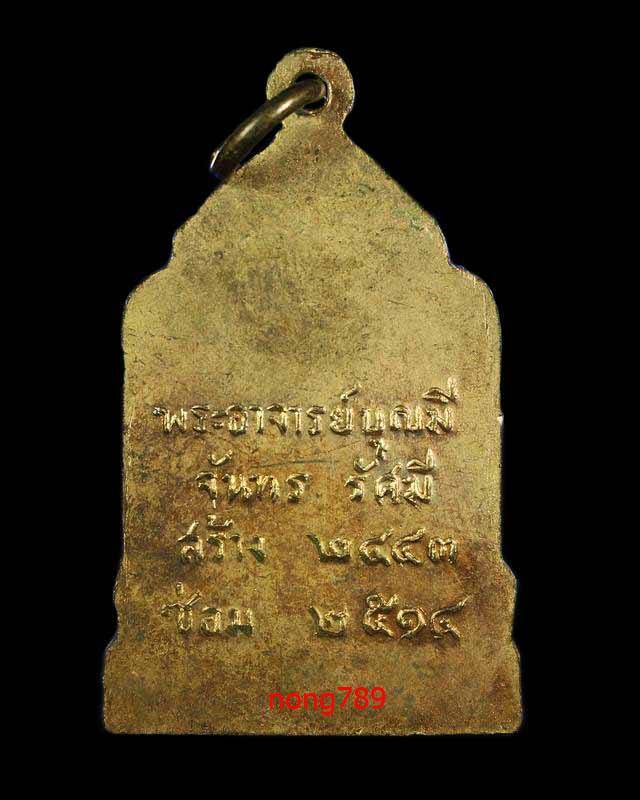 พระอาจารย์บุญมี
จันทร รัศมี
สร้าง ๒๔๔๓
ซ่อม ๒๕๑๔
nong789